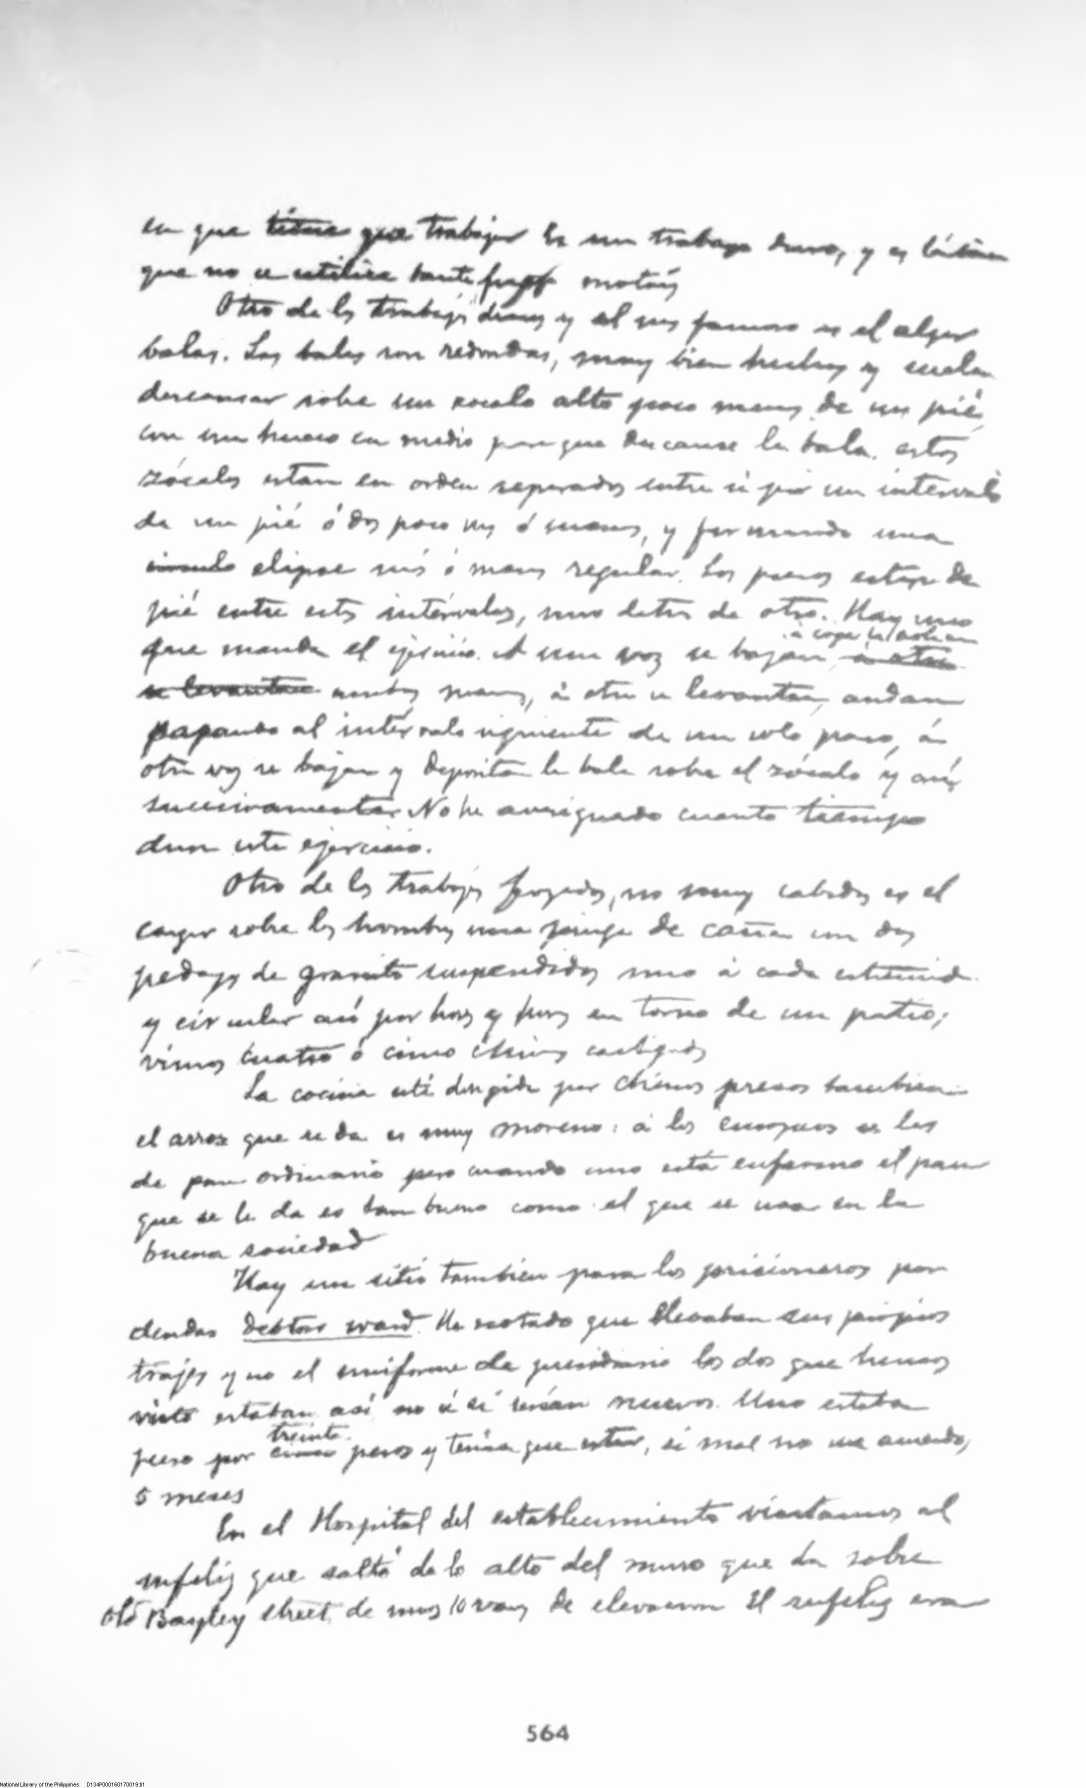 en que tiene que trabajar Es un trabajo duro, y es lástima
que no se utilice tanta fuerza motriz
Otro de los trabajos duros y el mas famoso es el alzar
balas. Las balas son redondas, muy bien hechas y suelen
descansar sobre un zocalo alto poco menos de un pié,
con un hueco en medio para que descanse la bala. estos
zócalos estan en orden separados entre si por un intervalo
de un pié ó dos poco mas ó menos, y formando una
circulo elipse más ó menos regular. Los presos estan de
pié entre estos intérvalos, uno detras de otro. Hay uno
que manda el ejercicio. A una voz se bajan, á otra
á coger la bola con
se levantan ambas manos, á otra se levantan, andan
pasando al intérvalo siguiente de un solo paso, á
otra voz se bajan y depositan la bala sobre el zócalo y así
sucesivamente. No he averiguado cuanto tiempo
dura este ejercicio.
Otro de los trabajos forzados, no muy sabidos es el
cargar sobre los hombros una pinga de caña con dos
pedazos de granito suspendidos uno á cada extremid.
y circular así por horas y horas en torno de un patio;
vimos cuatro ó cinco chinos castigados
La cocina está dirigida por chinos presos tambien
el arroz que se da es muy moreno: á los europeos se les
da pan ordinario pero cuando uno está enfermo el pan
que se le da es tan bueno como el que se usa en la
buena sociedad
Hay un sitio tambien para los prisioneros por
deudas debtors ward. He notado que llevaban sus propios
trajes y no el uniforme de presidiario los dos que hemos
visto estaban así no sé si serían nuevos. Uno estaba
treinta
preso por cinco pesos y tenía que estar, si mal no me acuerdo,
5 meses
En el Hospital del establecimiento visitamos al
infeliz que saltó de lo alto del muro que da sobre
Old Bayley street de unos 10 varas de elevacion El infeliz era
564
National Library of the Philippines D134P000160170019.tif